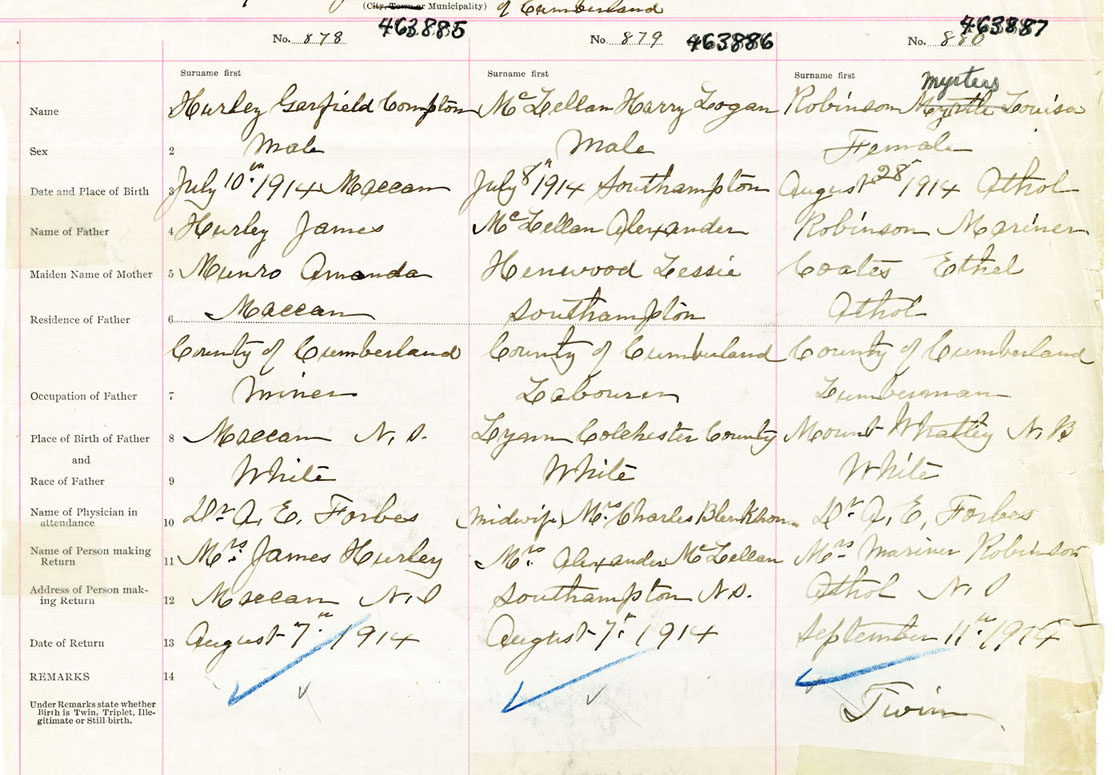 (City, Town or Municipality) of Cumberland
No. 878 463885 No. 879 463886 No. 880 463887
Surname first Surname first Surname first Mysters
Name Hurley Garfield Compton McLellan Harry Logan Robinson Myrtle Louisa
Sex 2 Male Male Female
Date and Place of Birth 3 July 10th 1914 Maccan July 8th 1914 Southampton August 28 1914 Athol
Name of Father 4 Hurley James McLellan Alexander Robinson Mariner
Maiden Name of Mother 5 Munro Amanda Henwood Lessie Coates Ethel
Residence of Father 6 Maccan Southampton Athol
County of Cumberland County of Cumberland County of Cumberland
Occupation of Father 7 Miner Labourer Lumberman
Place of Birth of Father 8 Maccan N.S. Lynn Colchester County Mount Whatley N.B
and
Race of Father 9 White White White
Name of Physician in
attendance 10 Dr A. E. Forbes (midwife) Mrs Charles Blenkhorn Dr A. E. Forbes
Name of Person making
Return 11 Mrs. James Hurley Mrs. Alexander McLellan Mrs Mariner Robinson
Address of Person mak-
ing Return 12 Maccan N.S Southampton N.S. Athol N.S
Date of Return 13 August 7th 1914 August 7th 1914 September 11th 1914
REMARKS 14
Under Remarks state whether
Birth is Twin, Triplet, Ille-
gitimate or Still-birth. Twin